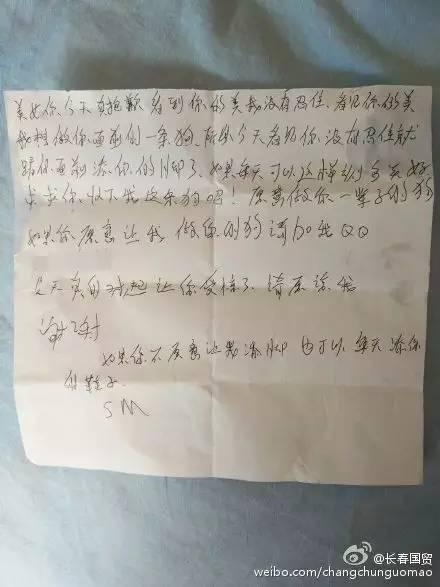 美女你今天真抱歉 看到你的美我没有忍住、看见你的美
我想做你面前的一条狗、所以今天看见你没有忍住就
跪你面前添你的脚了、如果每天可以这样多美好
求求你收下我这条狗吧！愿意做你一辈子的狗
如果你愿意让我做你的狗请加我QQ
今天真的对起让你受惊了 请原谅我
谢谢
如果你不愿意让我添脚 也可以每天添你
的鞋子.
SM
@长春国贸
weibo.com/changchunguomao